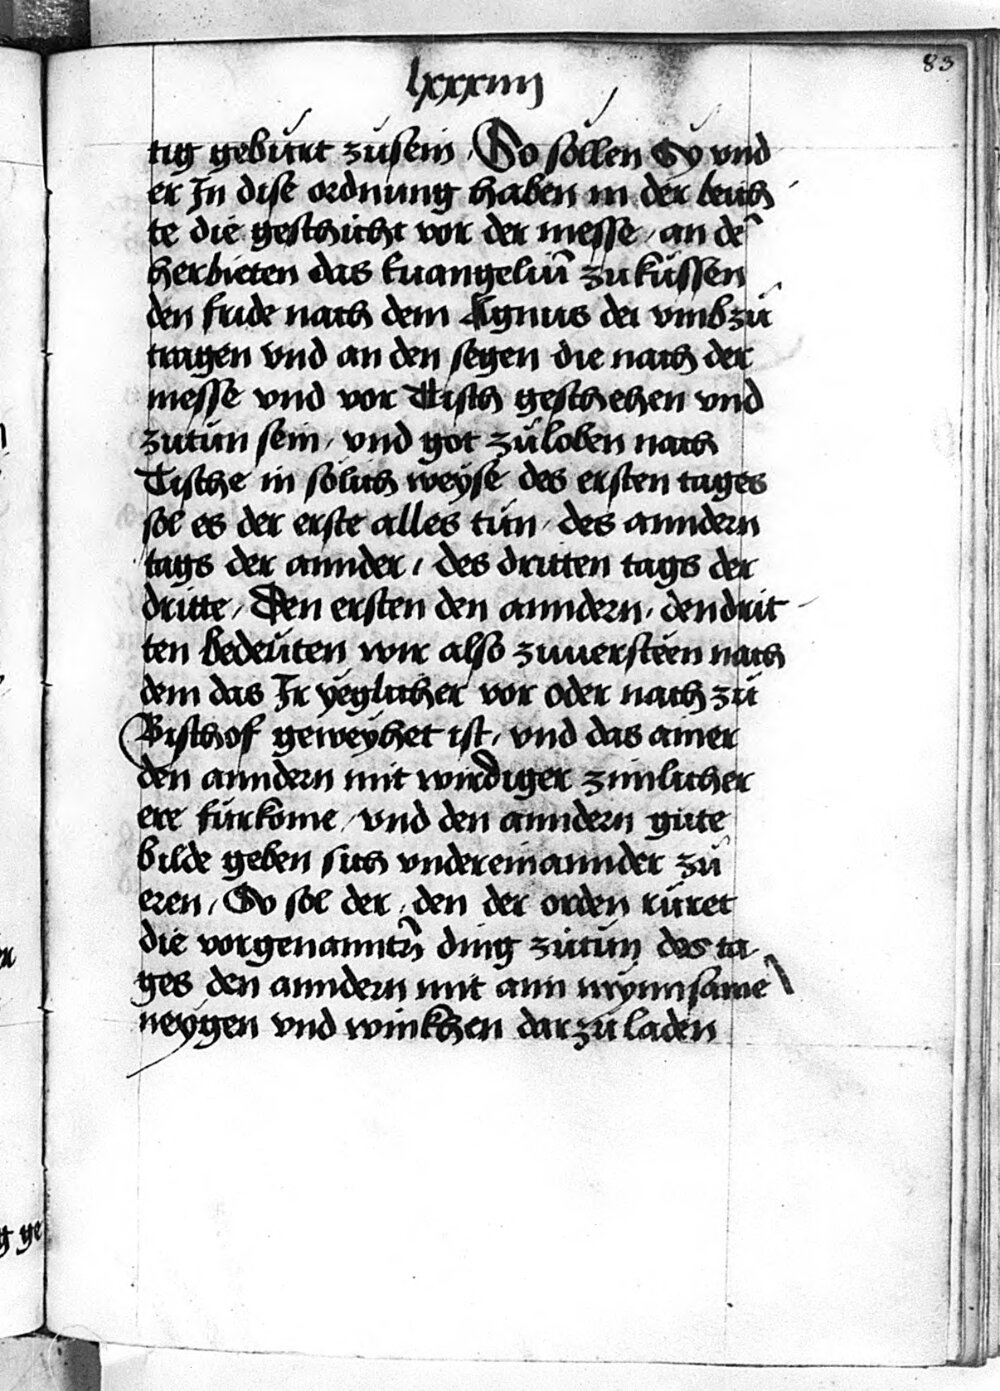 83
lxxxiiij
tig gebůrt zůsein / So sóllen Sÿ vnd
er In dise ordnung haben in der beich
te die geschicht vor der messe / an dē
herbieten das Euangeliū zuküssen
den fride nach dem Agnus dei vmbzů
tragen vnd an den segen die nach der
messe vnd vor Tisch geschehen vnd
zutůn sein / vnd got zůloben nach
Tische in sólich weÿse des ersten tages
sol es der erste alles tůn / des anndern
tags der annder / des dritten tags der
dritte / Den ersten den anndern / den drit
ten bedeüten wir also zuuersteen nach
dem das Ir ÿeglicher vor oder nach zů
Bischof geweÿhet ist / vnd das ainer
den anndern mit wirdiger zimlicher
ere fürkome / vnd den anndern gůte
bilde geben sich vndereinannder zů
eren / So sol der / den der orden rüret
die vorgenanntn̄ ding zůtůn des ta
ges den anndern mit ainn wÿnnsame
neÿgen vnd winkhen darzů laden